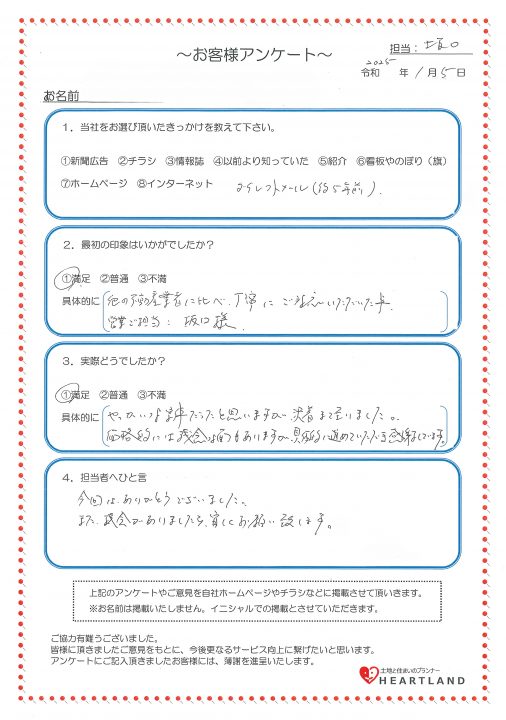 ～お客様アンケート～
担当：坂口
2025
令和 年 1月5日
お名前
1．当社をお選び頂いたきっかけを教えて下さい。
①新聞広告 ②チラシ ③情報誌 ④以前より知っていた ⑤紹介 ⑥看板やのぼり（旗）
⑦ホームページ ⑧インターネット ダイレクトメール(約5年前).
2．最初の印象はいかがでしたか？
①満足 ②普通 ③不満
具体的に 他の不動産業者に比べ、丁寧にご対応いただいた事.
営業ご担当：坂口様
3．実際どうでしたか？
①満足 ②普通 ③不満
具体的に やっかいな案件だったと思いますが、決着まで至りました。
価格的には残念な面もありますが、具体的に進めていただき感謝しています。
4．担当者へひと言
今回はありがとうございました。
また、機会がありましたら、宜しくお願い致します。
上記のアンケートやご意見を自社ホームページやチラシなどに掲載させて頂きます。
※お名前は掲載いたしません。イニシャルでの掲載とさせていただきます。
ご協力有難うございました。
皆様に頂きましたご意見をもとに、今後更なるサービス向上に繋げたいと思います。
アンケートにご記入頂きましたお客様には、薄謝を進呈いたします。
土地と住まいのプランナー
HEARTLAND